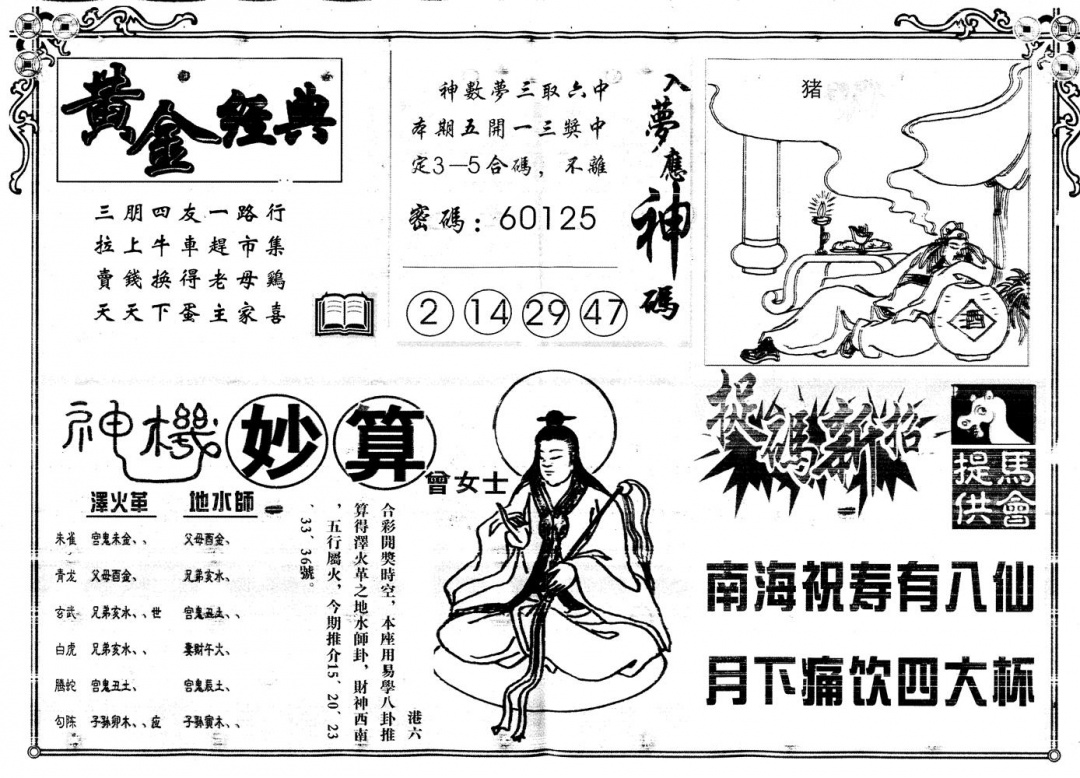 黄金經典
三朋四友一路行
拉上牛車趕市集
賣錢换得老母鷄
天天下蛋主家喜
神數夢三取六中
本期五開一三獎中
定3—5合碼，不離
密碼：60125
2 14 29 47
入夢應神碼
猪
酒
神機妙算
曾女士
澤火革 地水師
朱雀 宫鬼未金、、 父母酉金、
青龙 父母酉金、 兄弟亥水、
玄武 兄弟亥水、、世 宫鬼丑土、、
白虎 兄弟亥水、、 妻財午火、
螣蛇 宫鬼丑土、 宫鬼辰土、
勾陈 子孫卯木、、应 子孫寅木、、
港六
合彩開獎時空，本座用易學八卦推
算得澤火革之地水師卦，財神西南
，五行屬火，今期推介15、20、23
、33、36號。
捉碼新招
馬會提供
南海祝寿有八仙
月下痛饮四大杯